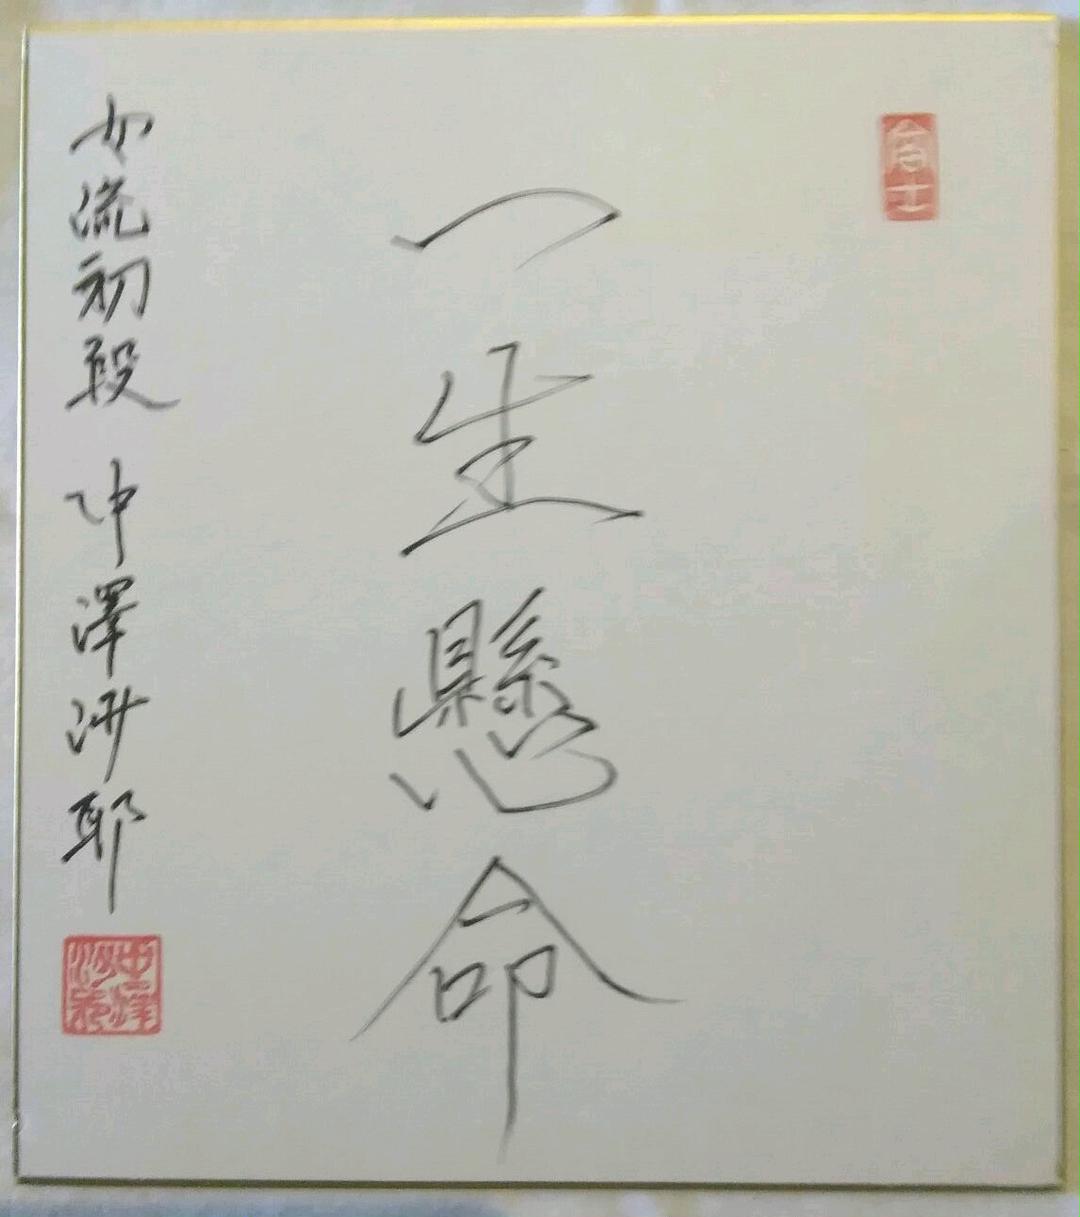 一生懸命
女流初段 中澤沙耶
中澤
沙耶